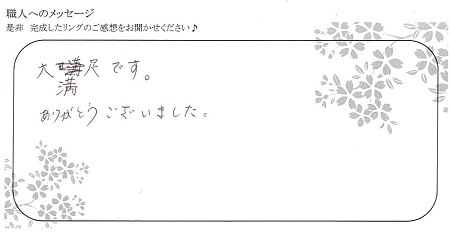 職人へのメッセージ
是非　完成したリングのご感想をお聞かせください♪
大満足です。
ありがとうございました。